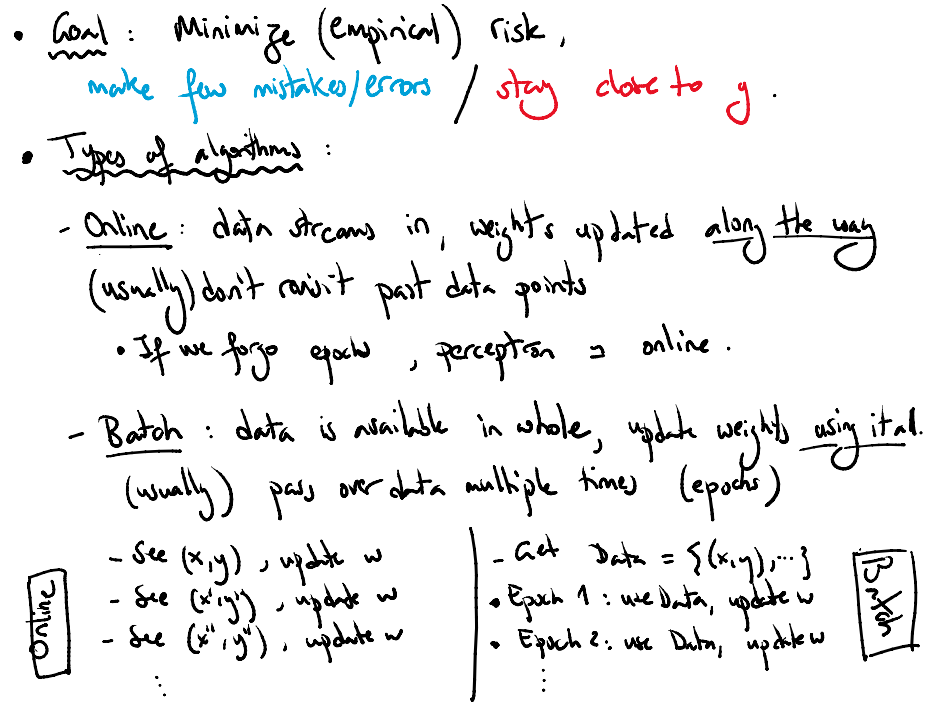 • Goal : Minimize (empirical) risk,
make few mistakes/errors / stay close to y.
• Types of algorithms :
- Online : data streams in, weights updated along the way
(usually) don't revisit past data points
• If we forgo epochs, perceptron → online.
- Batch : data is available in whole, update weights using it all.
(usually) pass over data multiple times (epochs)
Online
- See (x,y), update w
- See (x',y'), update w
- See (x'',y''), update w
⋮
- Get Data = {(x,y),...}
• Epoch 1 : use Data, update w
• Epoch 2 : use Data, update w
⋮
Batch